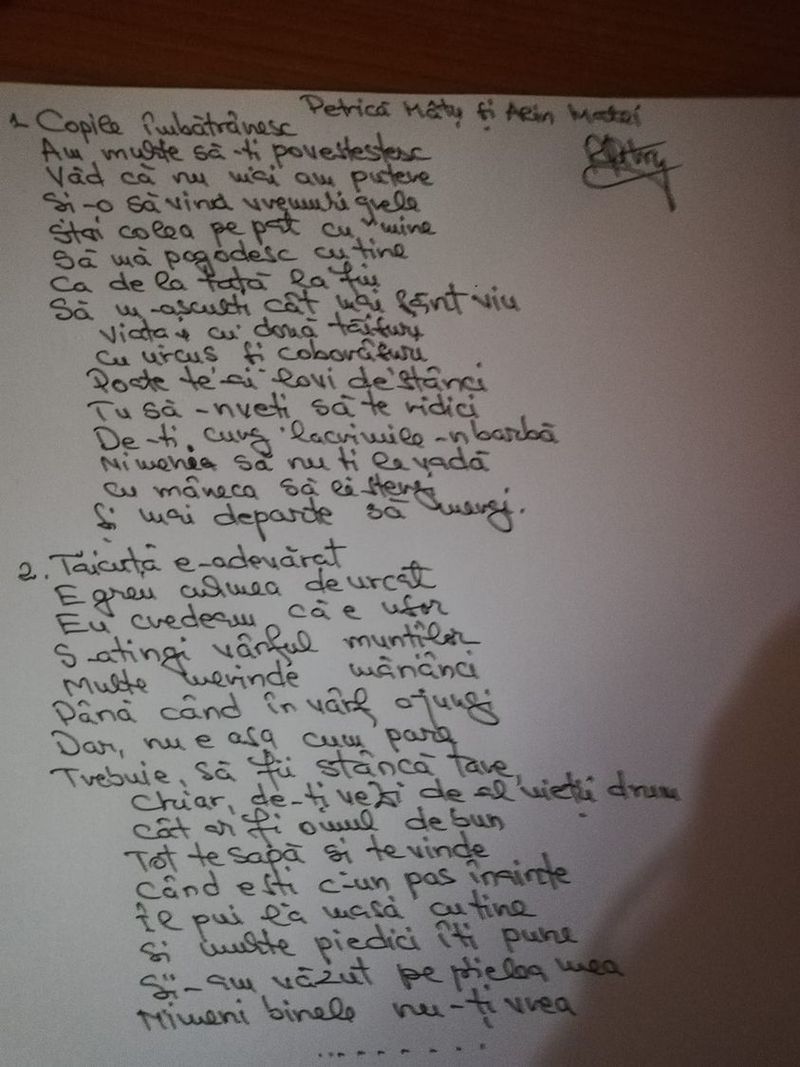 Petrică Mâțu și Alin Matei
1. Copile îmbătrânesc
Am multe să-ti povestestesc
Văd că nu mai am putere
Si-o să vină vremuri grele
Stai colea pe pat cu mine
Să mă pogodesc cu tine
Ca de la tată la fiu
Să m-asculti cât mai sânt viu
Viata-i cu două tăisuri
Cu urcus și coborâsuri
Poate te-ei lovi de stânci
Tu să-nveti să te ridici
De-ti curg lacrimile-n barbă
Nimenea să nu ti le vadă
Cu mâneca să le stergi
Și mai departe să mergi.
2. Tăicuță e-adevărat
E greu culmea de urcat
Eu credeam că e ușor
S-atingi vârful muntilor
Multe merinde mănânci
Până când în vârf ajungi
Dar, nu e asa cum pare
Trebuie, să fii stâncă tare,
Chiar, de-ți vezi de al vieții drum
Cât ar fi omul de bun
Tot te sapă si te vinde
Când esti c-un pas înainte
Îl pui la masă cu tine
Si multe piedici îti pune
Și-am văzut pe pielea mea
Nimeni binele nu-ți vrea
.........